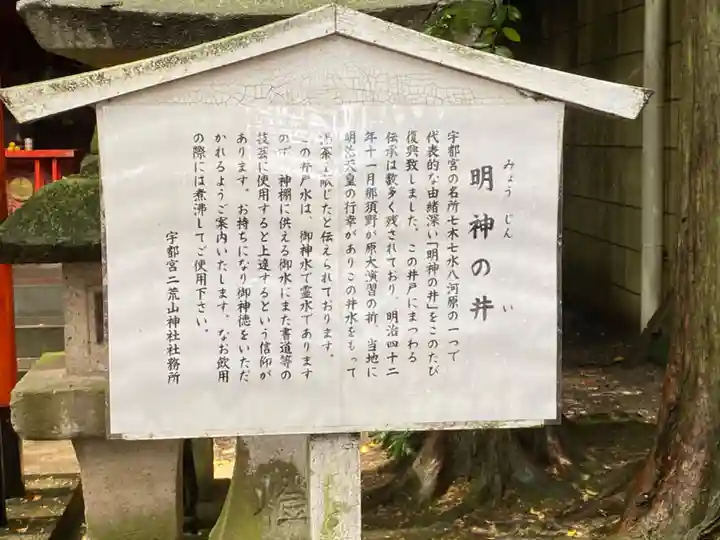 みょうじんい
明神の井
宇都宮の名所七木七水八河原の一つで
代表的な由緒深い「明神の井」をこのたび
復興致しました。この井戸にまつわる
伝承は数多く残されており、明治四十二
年十一月那須野が原大演習の折、当地に
明治天皇の行幸がありこの井水をもって
湯茶を献じたと伝えられております。
この井戸水は、御神水で霊水であります
ので、神棚に供える御水にまた書道等の
技芸に使用すると上達するという信仰が
あります。お持ちになり御神徳をいただ
かれるようご案内いたします。なお飲用
の際には煮沸してご使用下さい。
宇都宮二荒山神社社務所